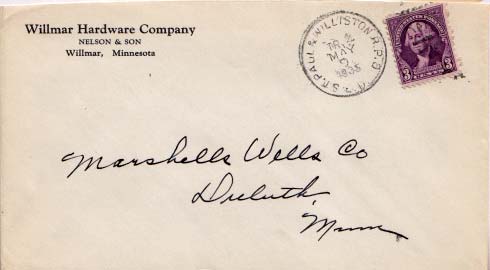 Willmar Hardware Company
NELSON & SON
Willmar, Minnesota
ST. PAUL & WILLISTON R.P.O.
TR 2
MAY
2
1935
3 CENTS 3
Marshells Wells Co
Duluth,
Minn